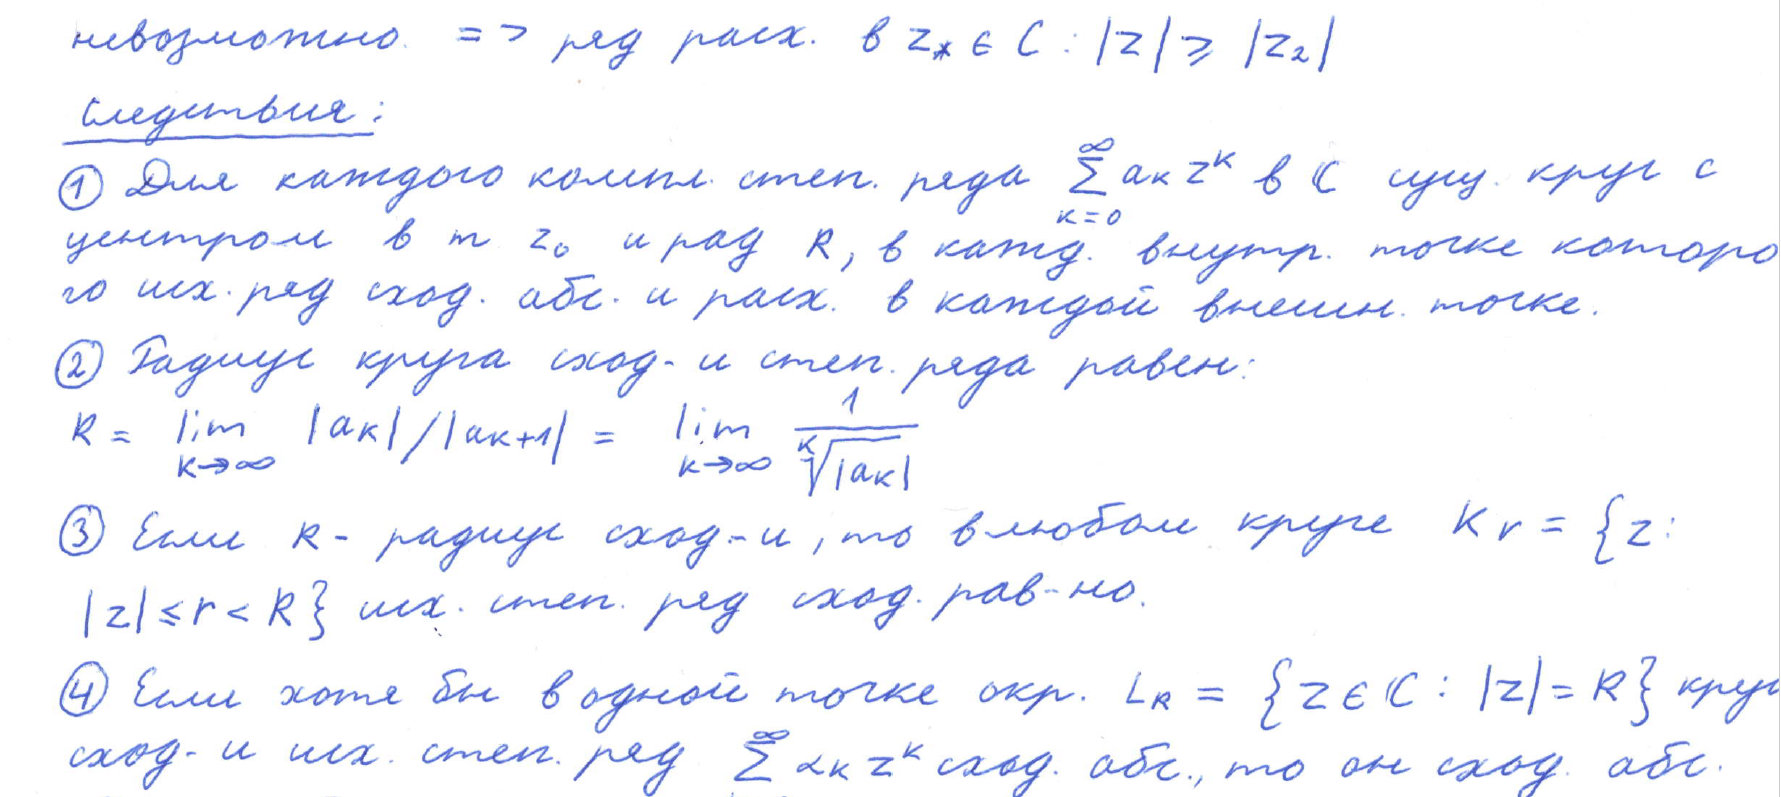 невозможно. => ряд расх. в z* ∈ C : |z| ⩾ |z₂|
Следствия:
① Для каждого компл. степ. ряда ∑_{k=0}^{∞} aₖ zᵏ в ℂ сущ. круг с
центром в т z₀ и рад R, в кажд. внутр. точке которо
го исх. ряд сход. абс. и расх. в каждой внешн. точке.
② Радиус круга сход-и степ. ряда равен:
R = lim_{k→∞} |aₖ| / |aₖ₊₁| = lim_{k→∞} 1/ᵏ√|aₖ|
③ Если R - радиус сход-и, то в любом круге Kr = {z :
|z| ≤ r < R} исх. степ. ряд сход. рав-но.
④ Если хотя бы в одной точке окр. L_R = {z ∈ ℂ : |z| = R} круг
сход-и исх. степ. ряд ∑^{∞} αₖ zᵏ сход. абс., то он сход. абс.